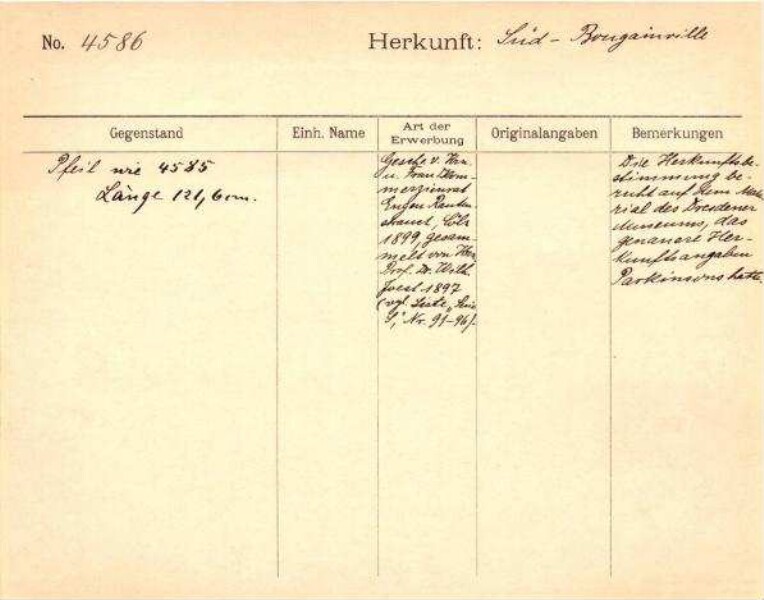 No. 4586 Herkunft: Süd - Bougainville
Gegenstand Einh. Name Art der Erwerbung Originalangaben Bemerkungen
Pfeil wie 4585
Länge 121,6 cm.
Gesch. v. Hrn.
u. Frau Kom-
merzienrat
Eugen Rauten-
strauch, Cöln
1899, gesam-
melt von Herrn
Prof. Dr. Wilh.
Joest 1897
(vgl. Liste
S, Nr. 91-96).
Die Herkunftsbe-
stimmung be-
ruht auf dem Mate-
rial des Dresdener
Museums, das
genauere Her-
kunftsangaben
Parkinsons hatte.